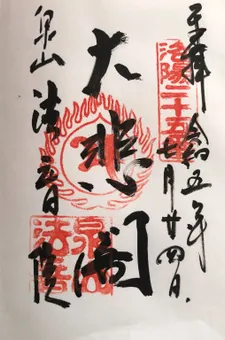 奉拝 令和五年
七月廿四日
洛陽二十五番
大悲閣
泉山 法音院
泉山
法音